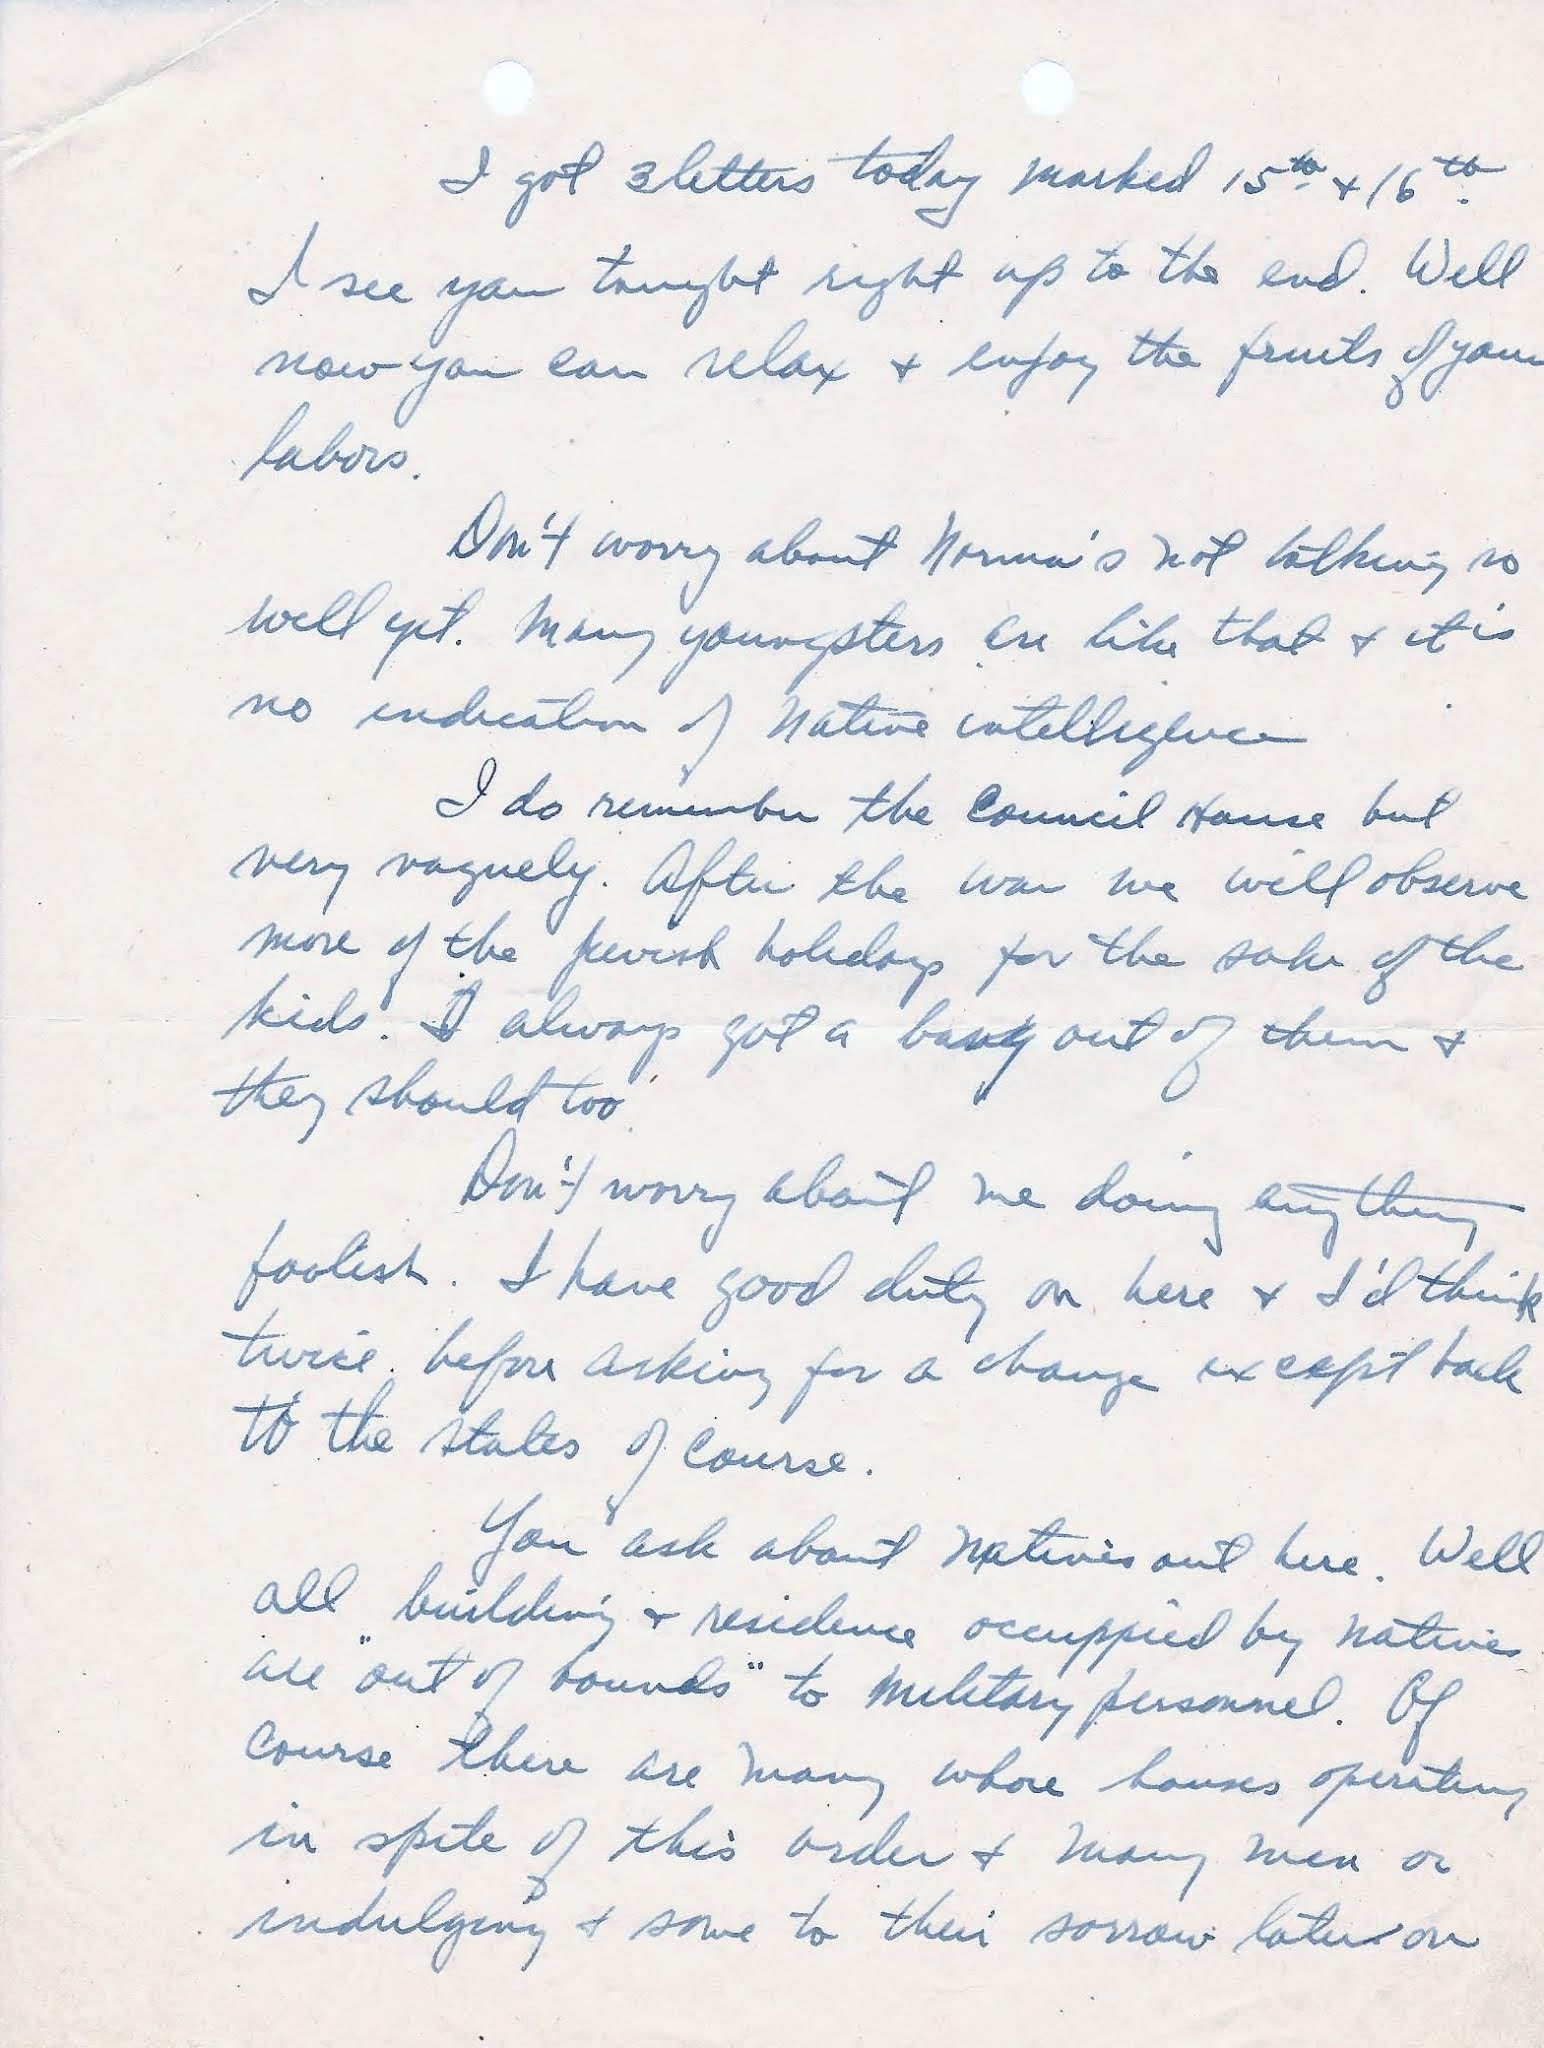 I got 3 letters today marked 15th & 16th.
I see you taught right up to the end. Well
now you can relax & enjoy the fruits of your
labors.
Don't worry about Norma's not talking so
well yet. Many youngsters are like that & it is
no indication of native intelligence
I do remember the Council House but
very vaguely. After the war we will observe
more of the Jewish holidays for the sake of the
kids. I always got a bang out of them &
they should too.
Don't worry about me doing anything
foolish. I have good duty on here & I'd think
twice before asking for a change except back
to the states of course.
You ask about natives out here. Well
all building & residence occuppied by natives
are "out of bounds" to military personnel. Of
course there are many whore houses operating
in spite of this order & many men or
indulging & some to their sorrow later on